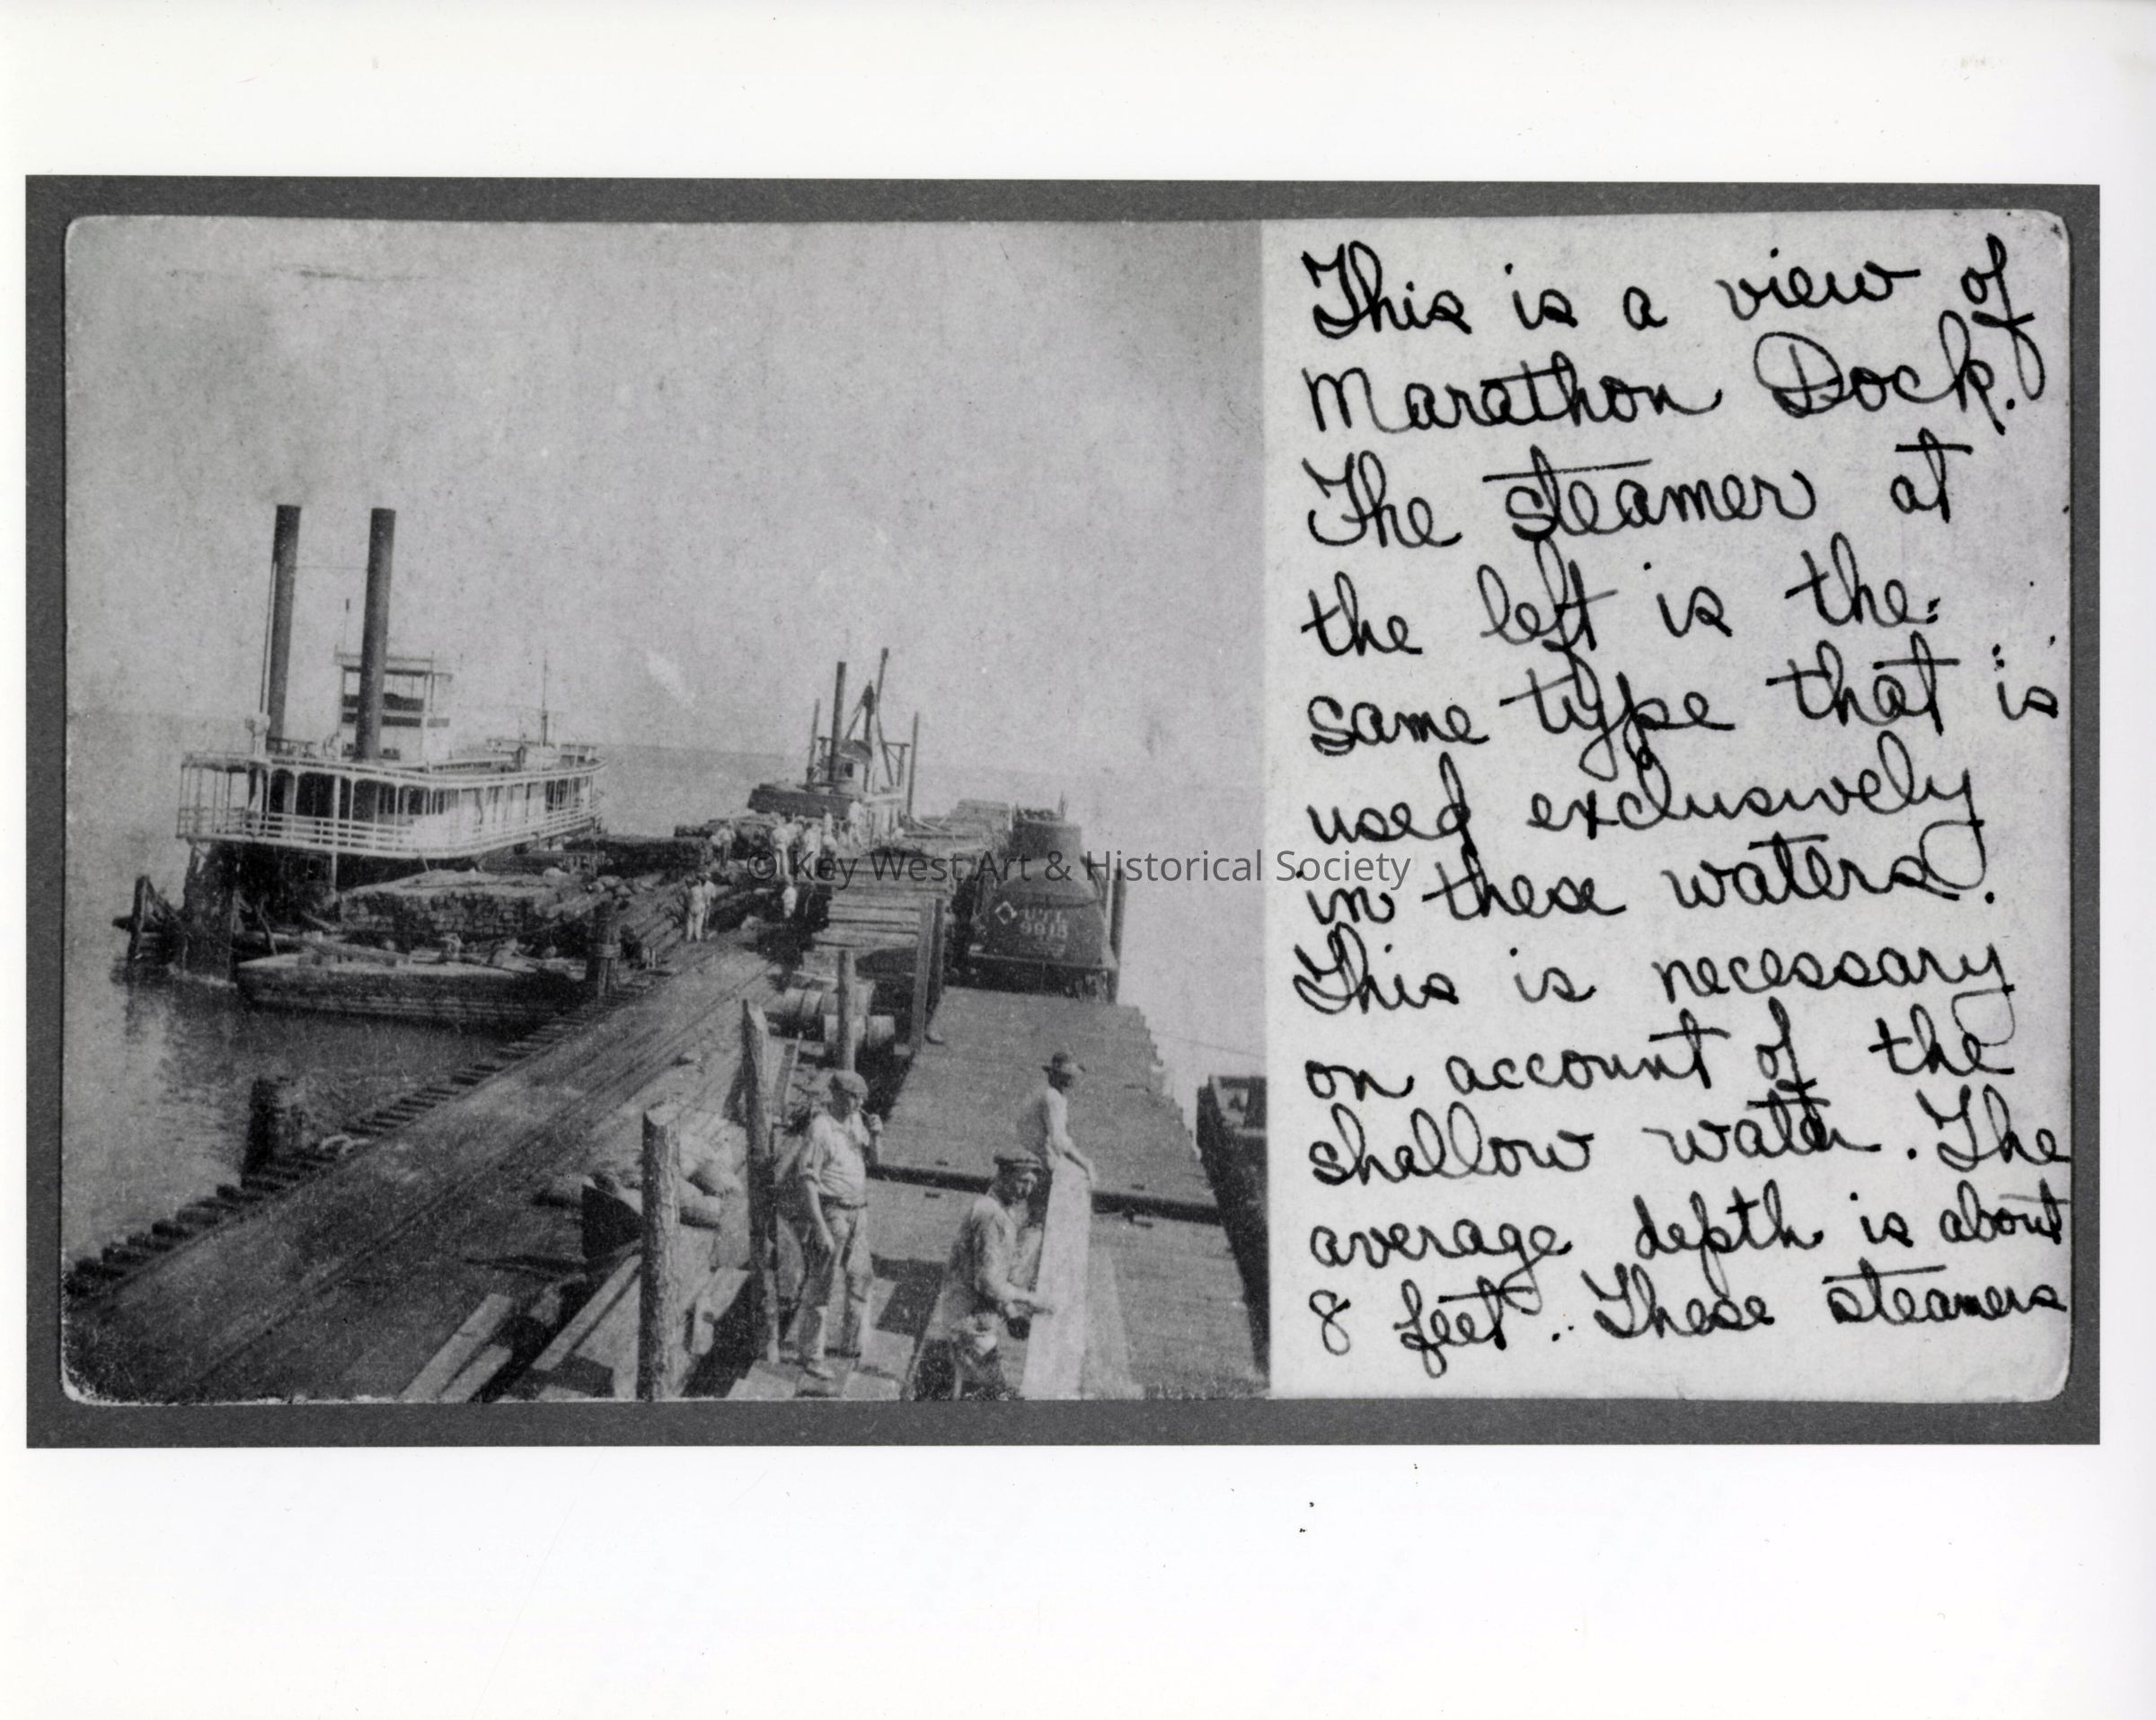 This is a view of
Marathon Dock.
The steamer at
the left is the
same type that is
used exclusively
in these waters.
This is necessary
on account of the
shallow water. The
average depth is about
8 feet. These steamers
© Key West Art & Historical Society
UTL
9015